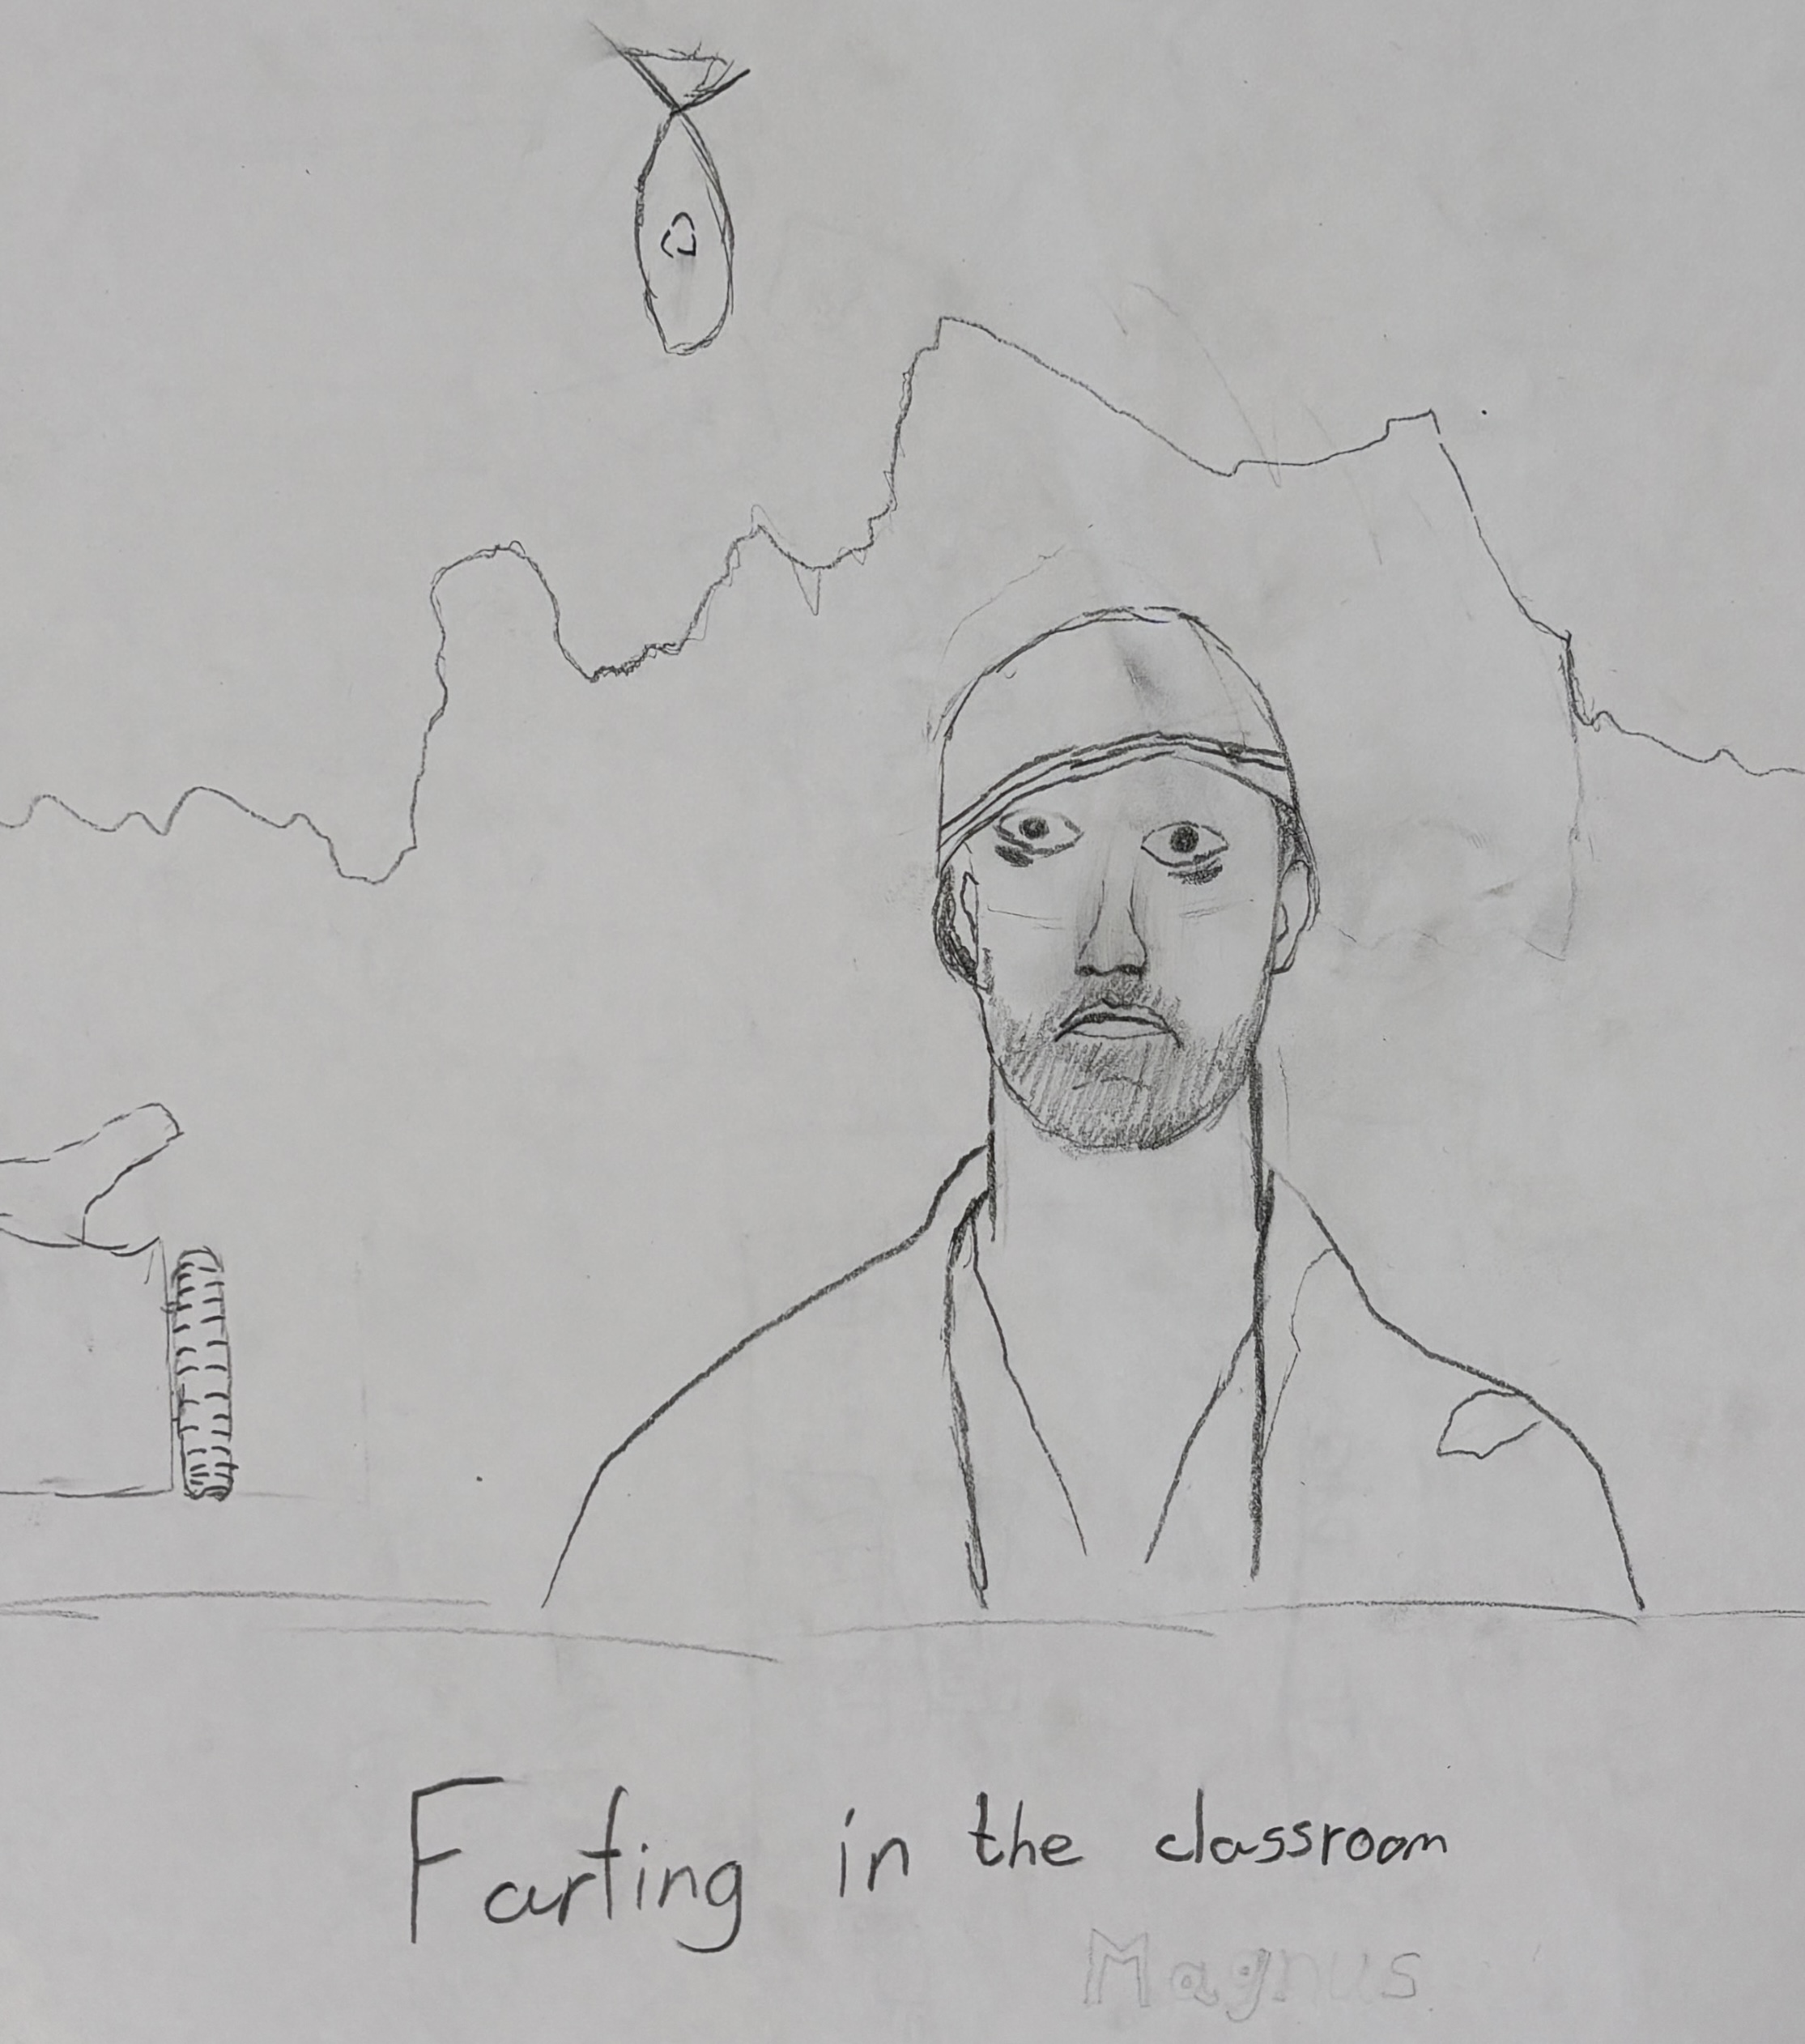 Farting in the classroom
Magnus